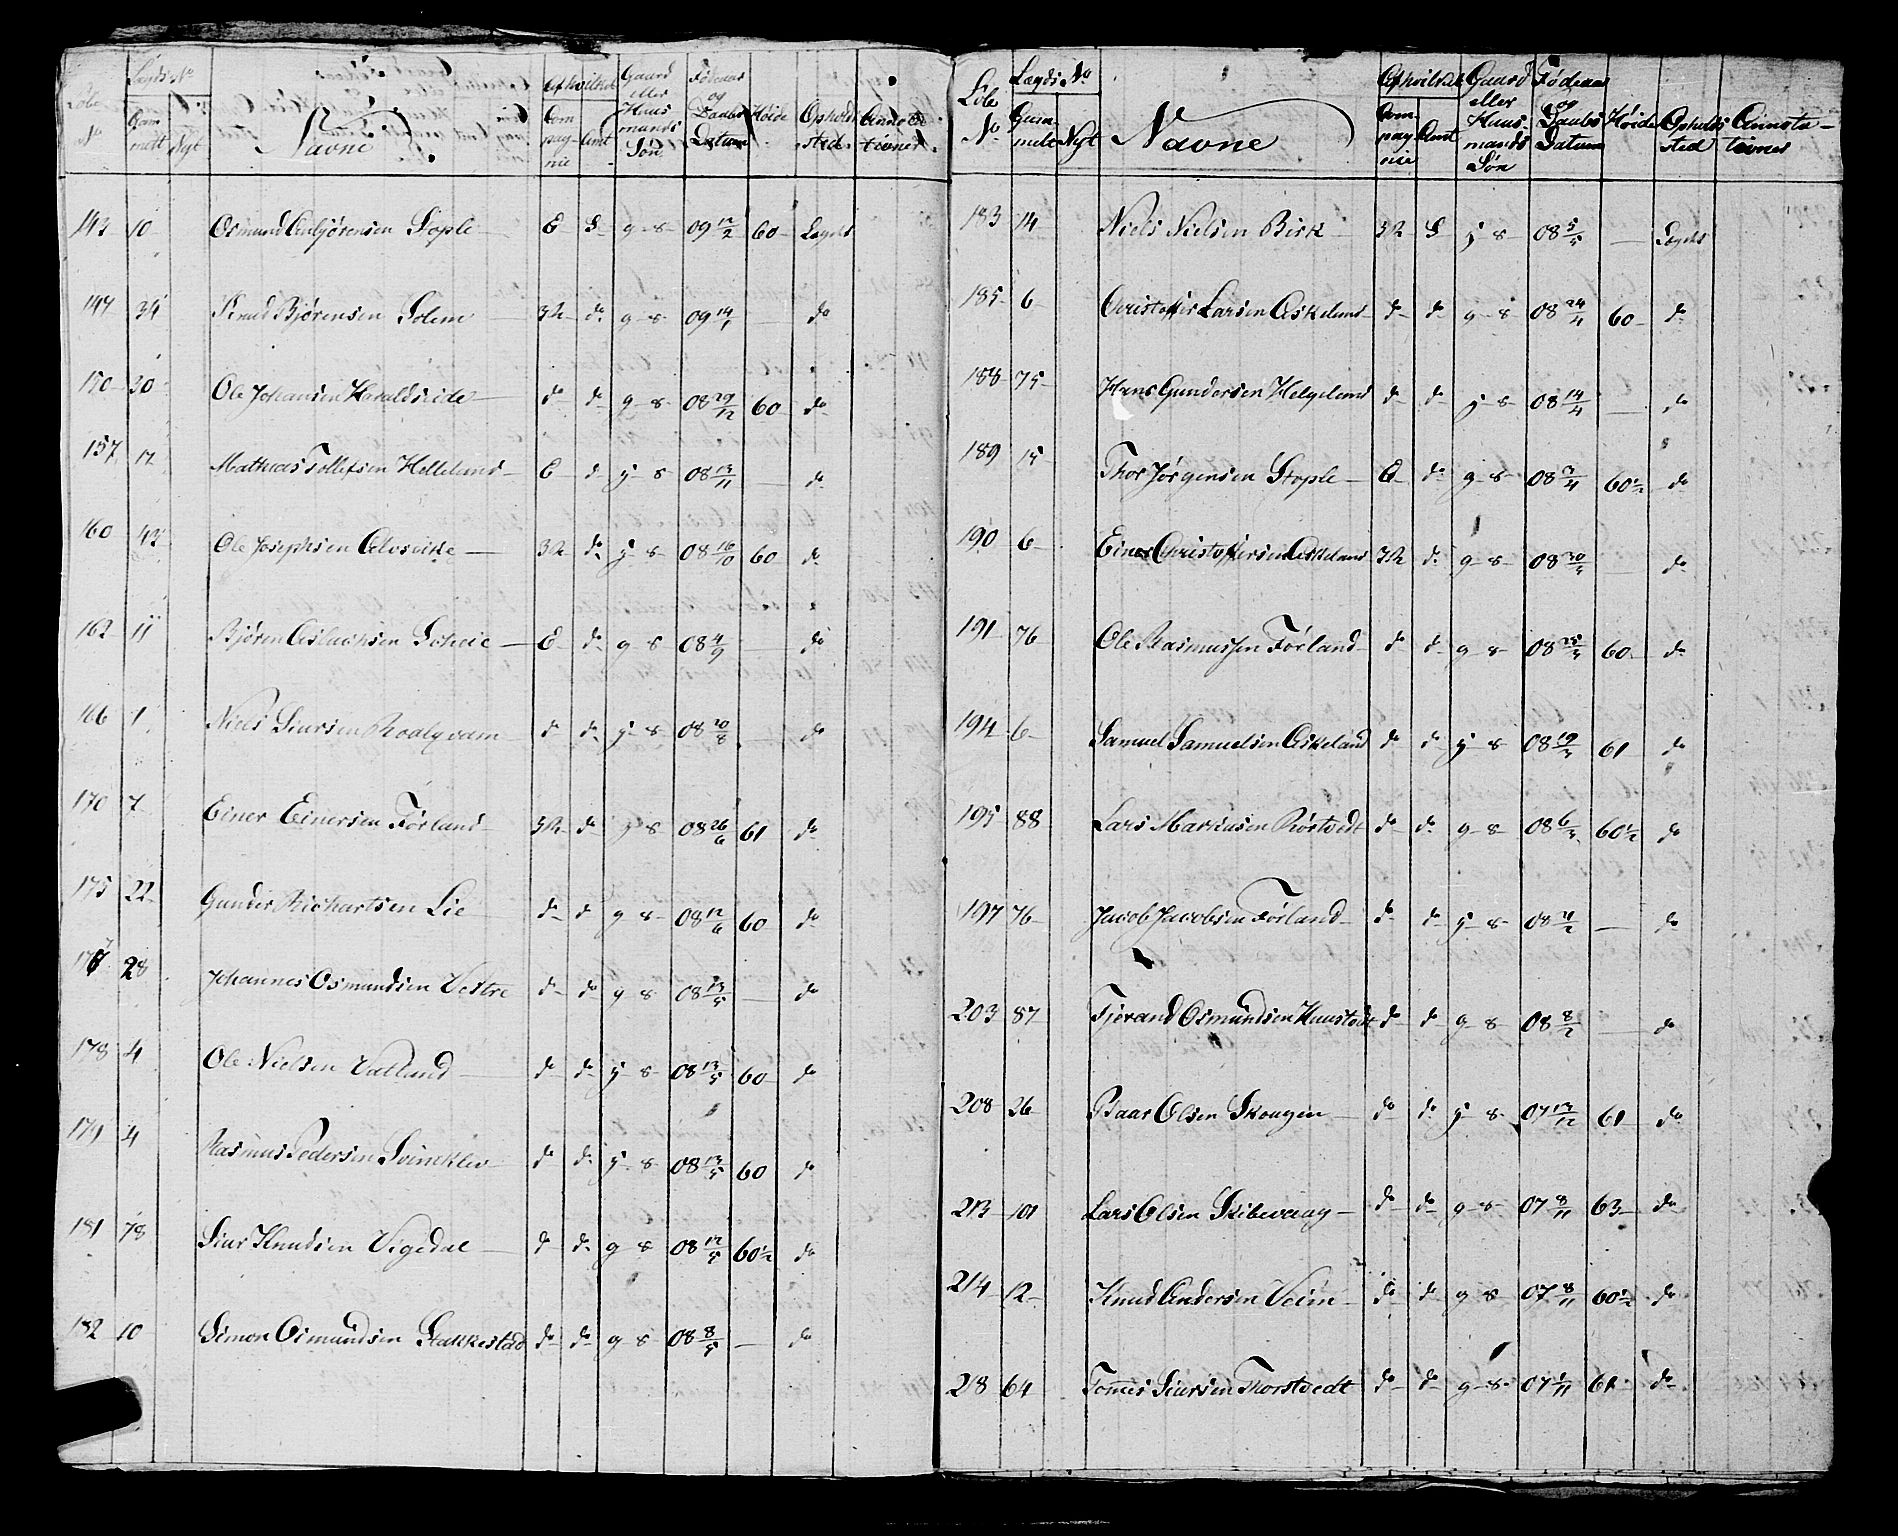 Løbe No | Lægds No Gammelt | Nyt | Navne | Af hvilket Compagnie | Amt | Gaard eller Huusmands Søn | Fødeaar og Daabs Datum | Høide | Opholds sted | Annotationer
143 10 Osmund Stople E S g s 09 12/2 60 Lægds
147 34 Knud Bjørensen Solem 3R do g s 09 14/1 — do
150 20 Ole Johansen Haraldseide do do g s 08 29/12 60 do
157 12 Mathias Tollefsen Helleland E do j s 08 13/11 — do
160 42 Ole Josephsen 3R do j s 08 16/10 60 do
162 11 Bjøren Aslachsen E do g s 08 4/9 — do
166 1 Niels Siursen do do j s 08 20/8 — do
170 7 Einer Einersen Førland 3R do j s 08 26/6 61 do
175 22 Gunder Richartsen Lie do do g s 08 12/6 60 do
177 28 Johannes Osmundsen Vestre do do g s 08 13/5 — do
178 4 Ole Nielsen Vatland do do j s 08 13/5 60 do
179 4 Rasmus Pedersen Svineklev do do j s 08 13/5 60 do
181 78 Siur Knudsen Vigedal do do g s 08 12/5 60½ do
182 10 Simon Osmundsen Stakkestad do do g s 08 8/5 — do
Løbe No | Lægds No Gammelt | Nyt | Navne | Af hvilket Compagnie | Amt | Gaard eller Huusmands Søn | Fødeaar og Daabs Datum | Høide | Opholds sted | Annotationer
183 14 Niels Nielsen Birk 3R S j s 08 5/5 — Lægds
185 6 Christoffer Larsen Askeland do do g s 08 24/4 60 do
188 75 Hans Gundersen Helgeland do do j s 08 14/4 — do
189 15 Thor Jørgensen Stople E do g s 08 3/4 60½ do
190 6 Einer Christoffersen Askeland 3R do g s 08 30/3 — do
191 76 Ole Rasmussen Førland do do g s 08 25/3 60 do
194 6 Samuel Samuelsen Askeland do do j s 08 19/3 61 do
195 88 Lars Markusen Rørtvedt do do g s 08 6/3 60½ do
197 76 Jacob Jacobsen Førland do do j s 08 — do
203 87 Tjerand Osmundsen do do g s 08 8/2 — do
208 26 Baar Olsen Skougen do do j s 07 13/12 61 do
213 101 Lars Olsen Skibevaag do do g s 07 8/11 63 do
214 12 Knud Andersen Veim do do g s 07 8/11 60½ do
218 64 Tommes Siursen Thorstvedt do do g s 07 1/11 61 do